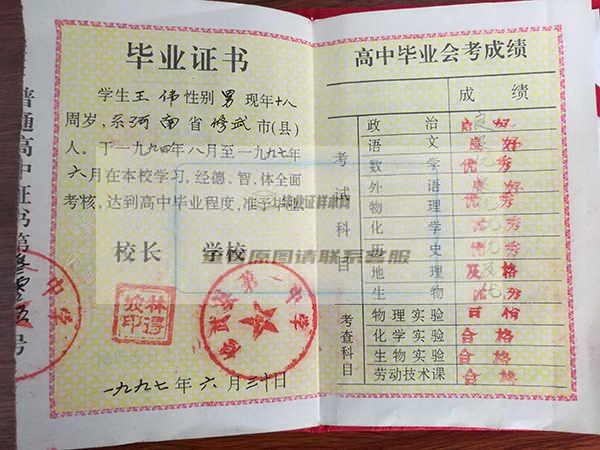 毕业证书
学生王伟性别男现年十八
周岁，系河南省修武市(县)
人。于一九九四年八月至一九九七年
六月在本校学习，经德、智、体全面
考核，达到高中毕业程度，准予毕业。
校长 学校
修武县第一中学
一九九七年六月三十日
普通高中证书第
号
中学
高中毕业会考成绩
成绩
考试科目
政治 良好
语文 良好
数学 优秀
外语 良好
物理 优秀
化学 优秀
历史 优秀
地理 及格
生物 优秀
考查科目
物理实验 合格
化学实验 合格
生物实验 合格
劳动技术课 合格
毕业证样本
原图请联系客服